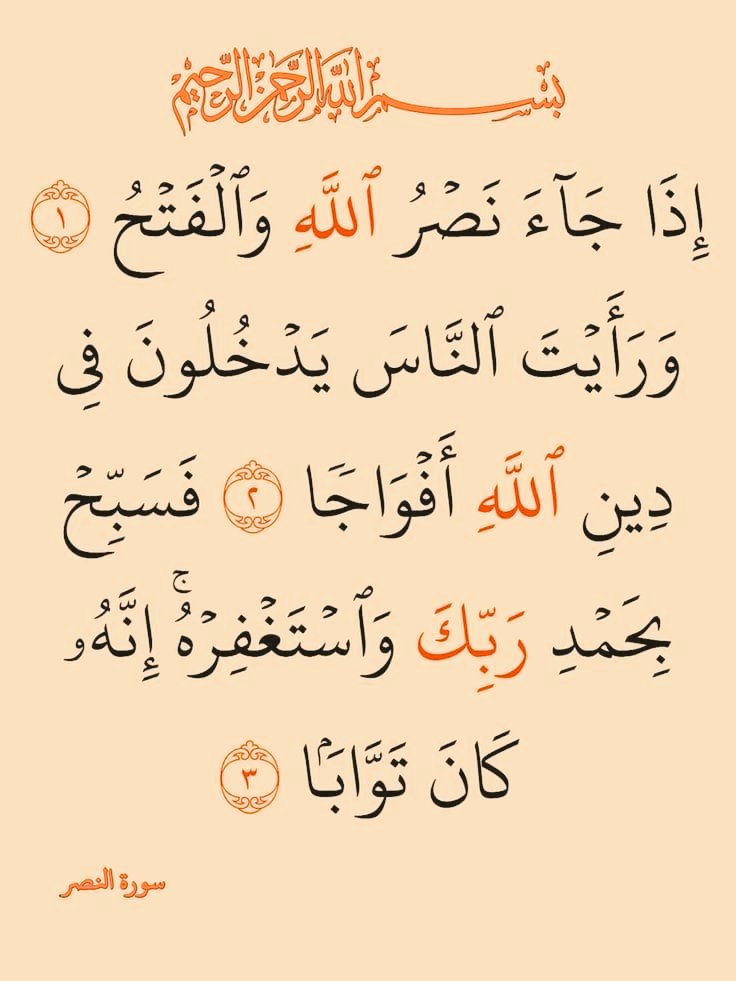 بِسْمِ اللهِ الرَّحْمٰنِ الرَّحِيْمِ
إِذَا جَآءَ نَصۡرُ ٱللَّهِ وَٱلۡفَتۡحُ ١
وَرَأَيۡتَ ٱلنَّاسَ يَدۡخُلُونَ فِي
دِينِ ٱللَّهِ أَفۡوَاجٗا ٢ فَسَبِّحۡ
بِحَمۡدِ رَبِّكَ وَٱسۡتَغۡفِرۡهُۚ إِنَّهُۥ
كَانَ تَوَّابَۢا ٣
سورة النصر